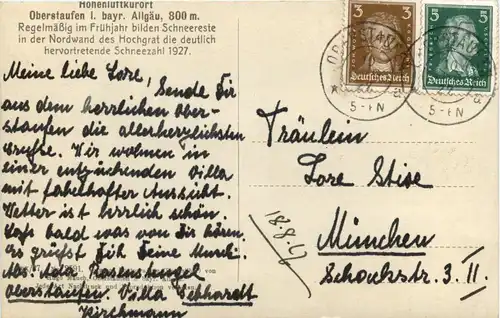 Höhenluftkurort
Oberstaufen i. bayr. Allgäu, 800 m.
Regelmäßig im Frühjahr bilden Schneereste
in der Nordwand des Hochgrat die deutlich
hervortretende Schneezahl 1927.
Meine liebe Lore, Sende Dir
aus dem herrlichen Ober-
staufen die allerherzlichsten
Grüße. Wir wohnen in
einer entzückenden Villa
mit fabelhafter Aussicht.
Wetter ist herrlich schön.
Lass bald was von Dir hören.
Es grüßt Dich Deine
Abs. Ada Rosenstengel
Oberstaufen. Villa Gebhardt
Kirchmann
3
Deutsches Reich
5
Deutsches Reich
5-6N
5-6N
Fräulein
Lore Stise
München
Schackstr. 3. II.